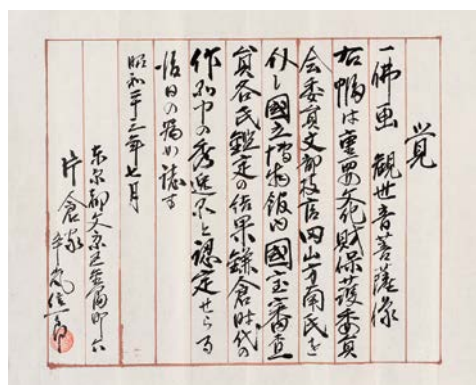 覚
一佛画 観世音菩薩像
右幅は重要文化財保護委員
会委員文部技官田山方南氏を
介し國立博物館内國宝審査
員各氏鑑定の結果鎌倉時代の
作品中の秀逸品と認定せらる
後日の為め誌す
昭和 十三年七月
東京都文京区 町六
片倉家